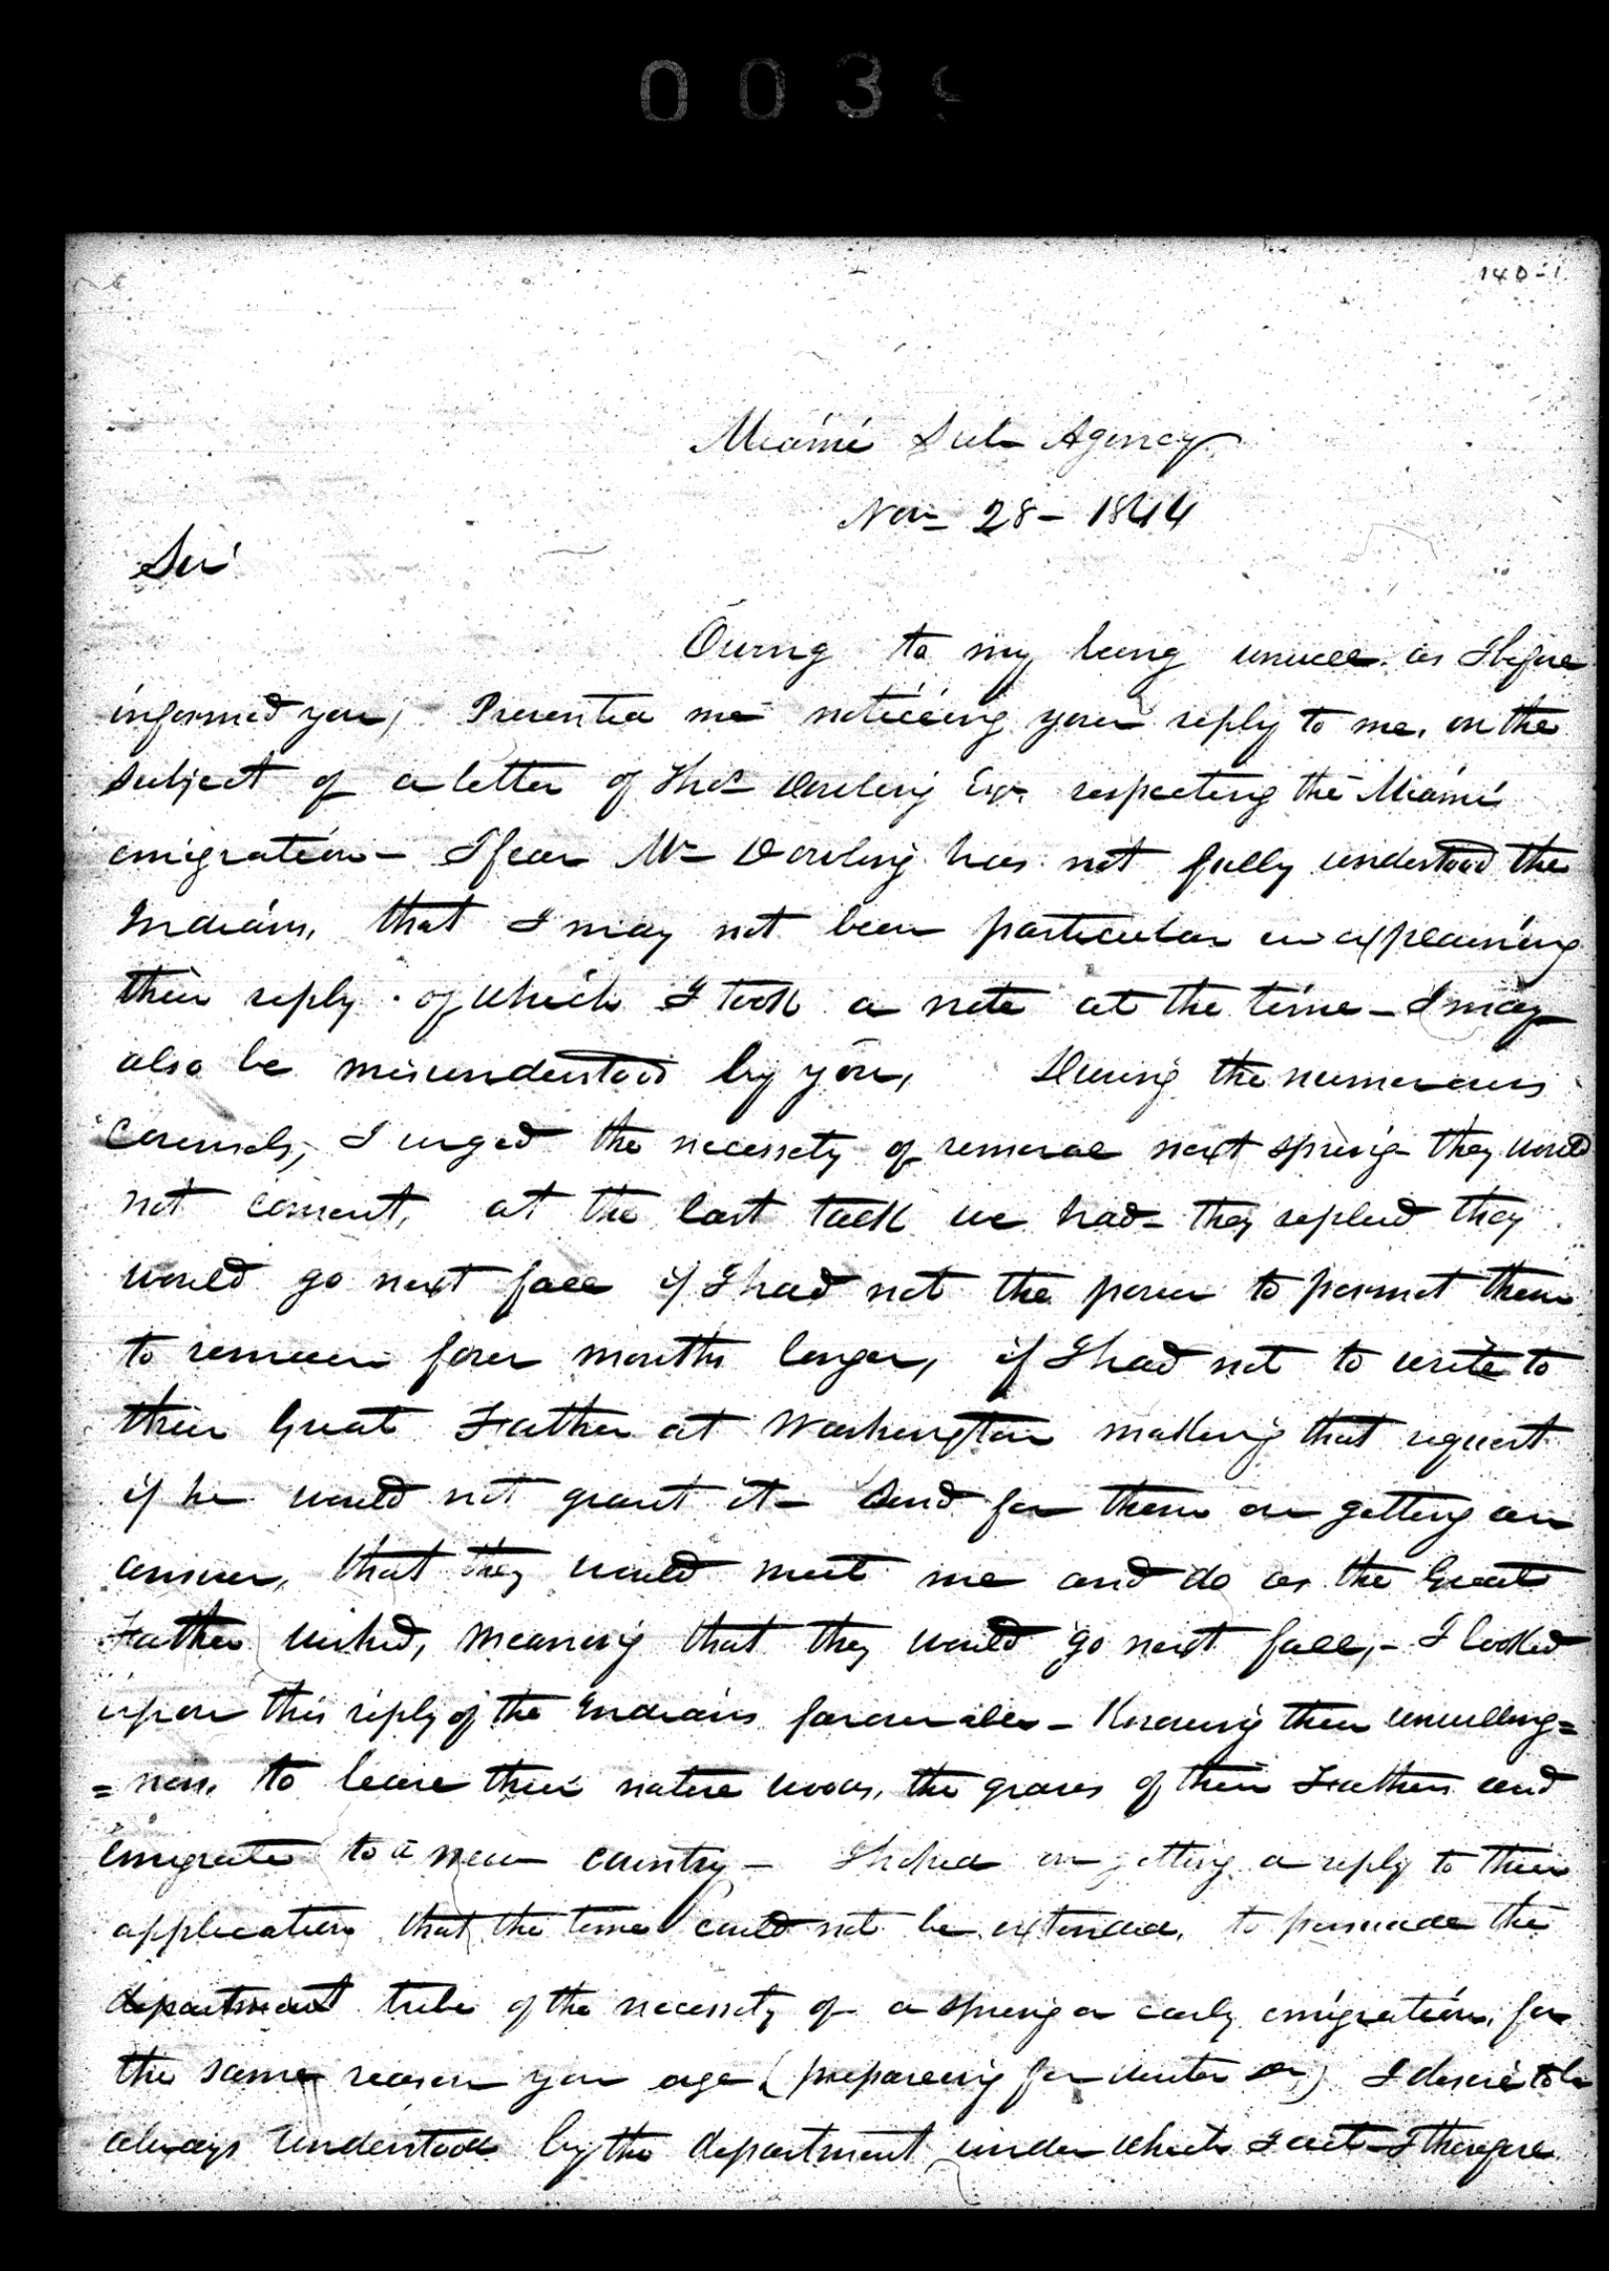 003
140-1
Miami Sub Agency
Nov 28 - 1844
Sir
Owing to my being unwell as I before
informed you, Prevented me noticeing your reply to me, on the
subject of a letter of Thos Dowling Esqr respecting the Miami
emigration - I fear Mr Dowling has not fully understood the
Indians, that I may not been particular in explaining
their reply. of which I took a note at the time - I may
also be misunderstood by you, During the numerous
Councils, I urged the necessity of removal next spring - they would
not consent, at the last talk we had - they replied they
would go next fall if I had not the power to permit them
to remain four months longer, if I had not to write to
their Great Father at Washington making that request
if he would not grant it - Send for them on getting an
answer, that they would meet me and do as the Great
Father wished, meaning that they would go next fall, - I looked
upon this reply of the Indians favourable - Knowing their unwilling=
=ness, to leave their native woods, the graves of their Fathers and
emigrate to a new country - I hoped on getting a reply to their
application that the time could not be extended, to persuade the
department tribe of the necessity of a spring or early emigration, for
the same reason you (prepareing for winter &c) I desire to be
always understood by the department under which I act - I therefore